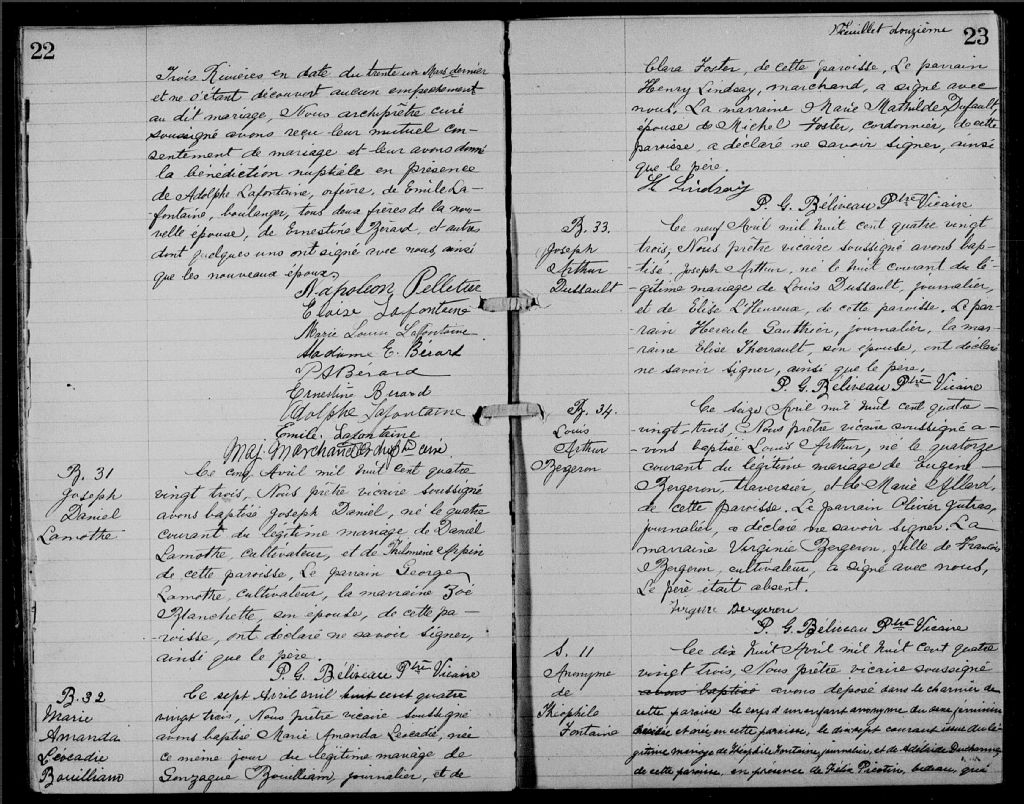 22
Trois Rivières en date du trente un Mars dernier
et ne s'étant découvert aucun empêchement
au dit mariage, Nous archiprêtre curé
soussigné avons reçu leur mutuel con-
sentement de mariage et leur avons donné
la bénédiction nuptiale en présence
de Adolphe Lafontaine, orfèvre, de Emile La-
fontaine, boulanger, tous deux frères de la nou-
velle épouse, de Ernestine Bérard, et autres
dont quelques uns ont signé avec nous, ainsi
que les nouveaux époux.
Napoléon Pelletier
Eloise Lafontaine
Marie Louise Lafontaine
Madame E. Bérard
P A Bérard
Ernestine Bérard
Adolphe Lafontaine
Emile Lafontaine
Maj. Marchand curé
B. 31
Joseph
Daniel
Lamothe
Ce cinq Avril mil huit cent quatre
vingt trois, Nous prêtre vicaire soussigné
avons baptisé Joseph Daniel, né le quatre
courant du légitime mariage de Daniel
Lamothe cultivateur, et de Philomène
de cette paroisse, Le parrain George
Lamothe, cultivateur, la marraine Zoé
Blanchette, son épouse, de cette pa-
roisse, ont déclaré ne savoir signer,
ainsi que le père.
P. G. Béliveau Ptre Vicaire
B. 32
Marie
Amanda
Léocadie
Bouilliam
Ce sept Avril mil huit cent quatre
vingt trois, Nous prêtre vicaire soussigné
avons baptisé Marie Amanda Léocadie, née
ce même jour du légitime mariage de
Gonzague Bouilliam, journalier, et de
Feuillet douzième
23
Clara Foster, de cette paroisse, Le parrain
Henry Lindsay, marchand, a signé avec
nous, La marraine Marie Mathilde Dufault,
épouse de Michel Foster, cordonnier, de cette
paroisse, a déclaré ne savoir signer, ainsi
que le père.
H Lindsay
P. G. Béliveau Ptre Vicaire
B. 33.
Joseph
Arthur
Dussault
Ce neuf Avril mil huit cent quatre vingt
trois, Nous prêtre vicaire soussigné avons bap-
-tisé Joseph Arthur, né le huit courant du lé-
-gitime mariage de Louis Dussault, journalier,
et de Elise L'Heureux, de cette paroisse. Le par-
-rain Hercule Gauthier, journalier, la mar-
-raine Elise Therrault, son épouse, ont déclaré
ne savoir signer, ainsi que le père.
P. G. Béliveau Ptre Vicaire
B. 34.
Louis
Arthur
Bergeron
Ce seize Avril mil huit cent quatre-
-vingt-trois, Nous prêtre vicaire soussigné a-
-vons baptisé Louis Arthur, né le quatorze
courant du légitime mariage de Eugène
Bergeron, traversier, et de Marie Allard,
de cette paroisse. Le parrain Olivier Gutras,
journalier, a déclaré ne savoir signer. La
marraine Virginie Bergeron, fille de François
Bergeron, cultivateur, a signé avec nous,
Le père était absent.
Virginie Bergeron
P. G. Béliveau Ptre Vicaire
S. 11
Anonyme
de
Théophile
Fontaine
Ce dix huit Avril mil huit cent quatre
vingt trois, Nous prêtre vicaire soussigné
avons baptisé avons déposé dans le charnier de
cette paroisse le corps d'un enfant anonyme du sexe féminin
décédée et née en cette paroisse, le dix sept courant issue du lé-
gitime mariage de Théophile Fontaine, journalier, et de Adélaïde
de cette paroisse, en présence de Félix Picotin, bedeau, qui